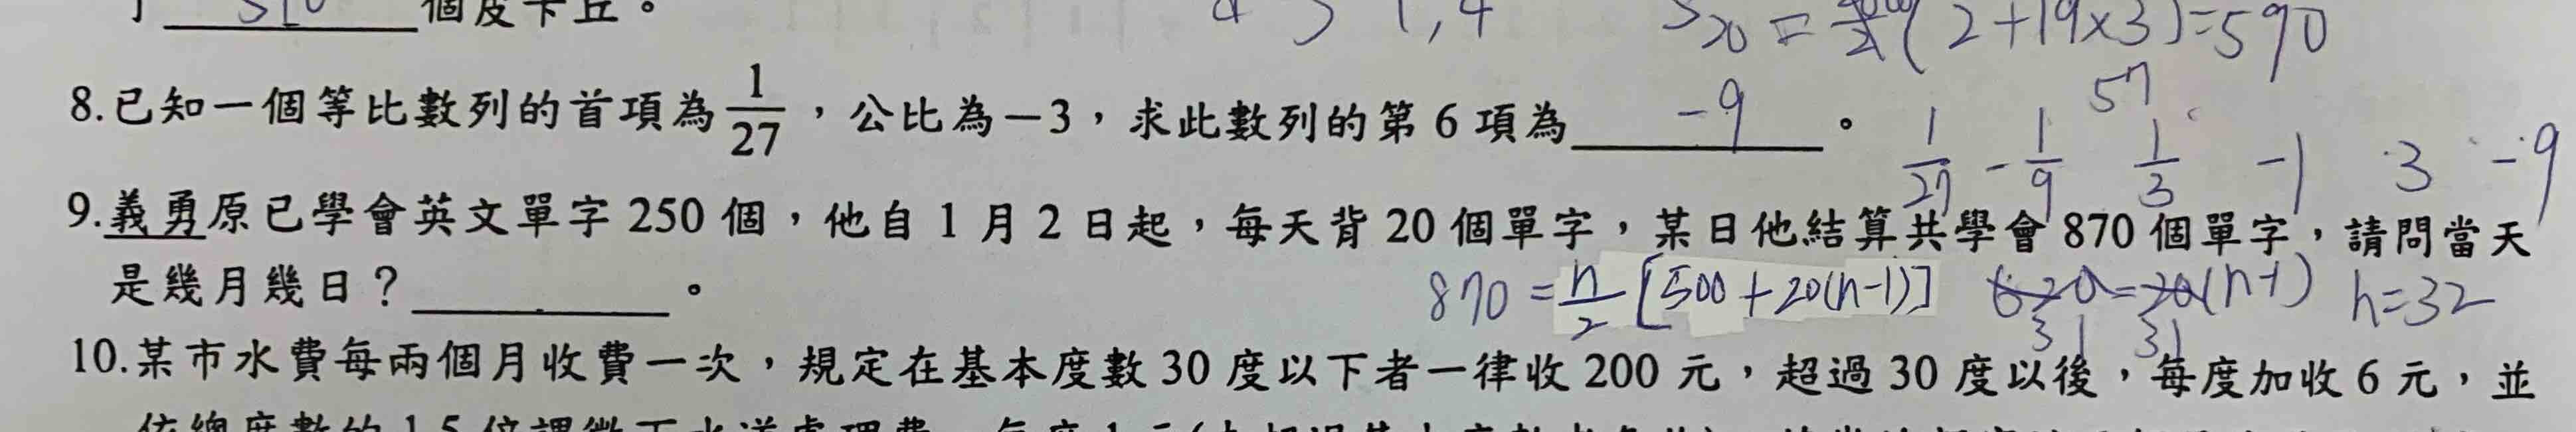 個皮卡丘。 S20 = (2+19×3)=590
57
8.已知一個等比數列的首項為1/27，公比為－3，求此數列的第6項為 -9 。 1/27 -1/9 1/3 -1 3 -9
9.義勇原已學會英文單字250個，他自1月2日起，每天背20個單字，某日他結算共學會870個單字，請問當天
是幾月幾日？ 。 870 = n/2 [500+20(n-1)] 620=20(n-1) n=32
31 31
10.某市水費每兩個月收費一次，規定在基本度數30度以下者一律收200元，超過30度以後，每度加收6元，並